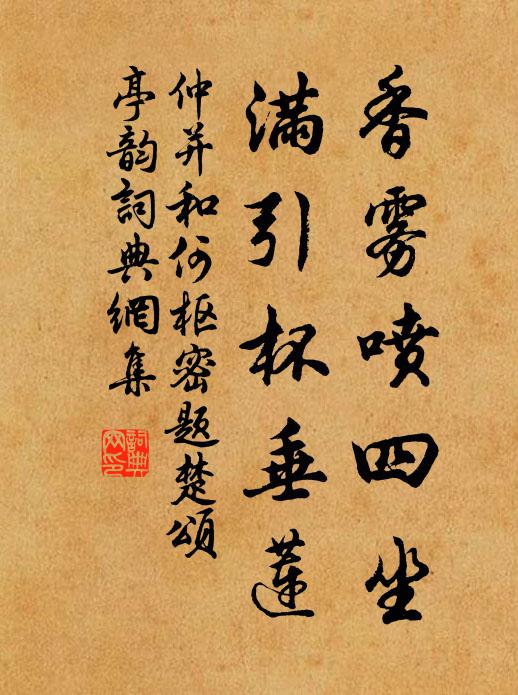 香雾喷四坐
满引杯垂莲
仲并和何枢密题楚颂
亭韵詞典網集
詞典
网印